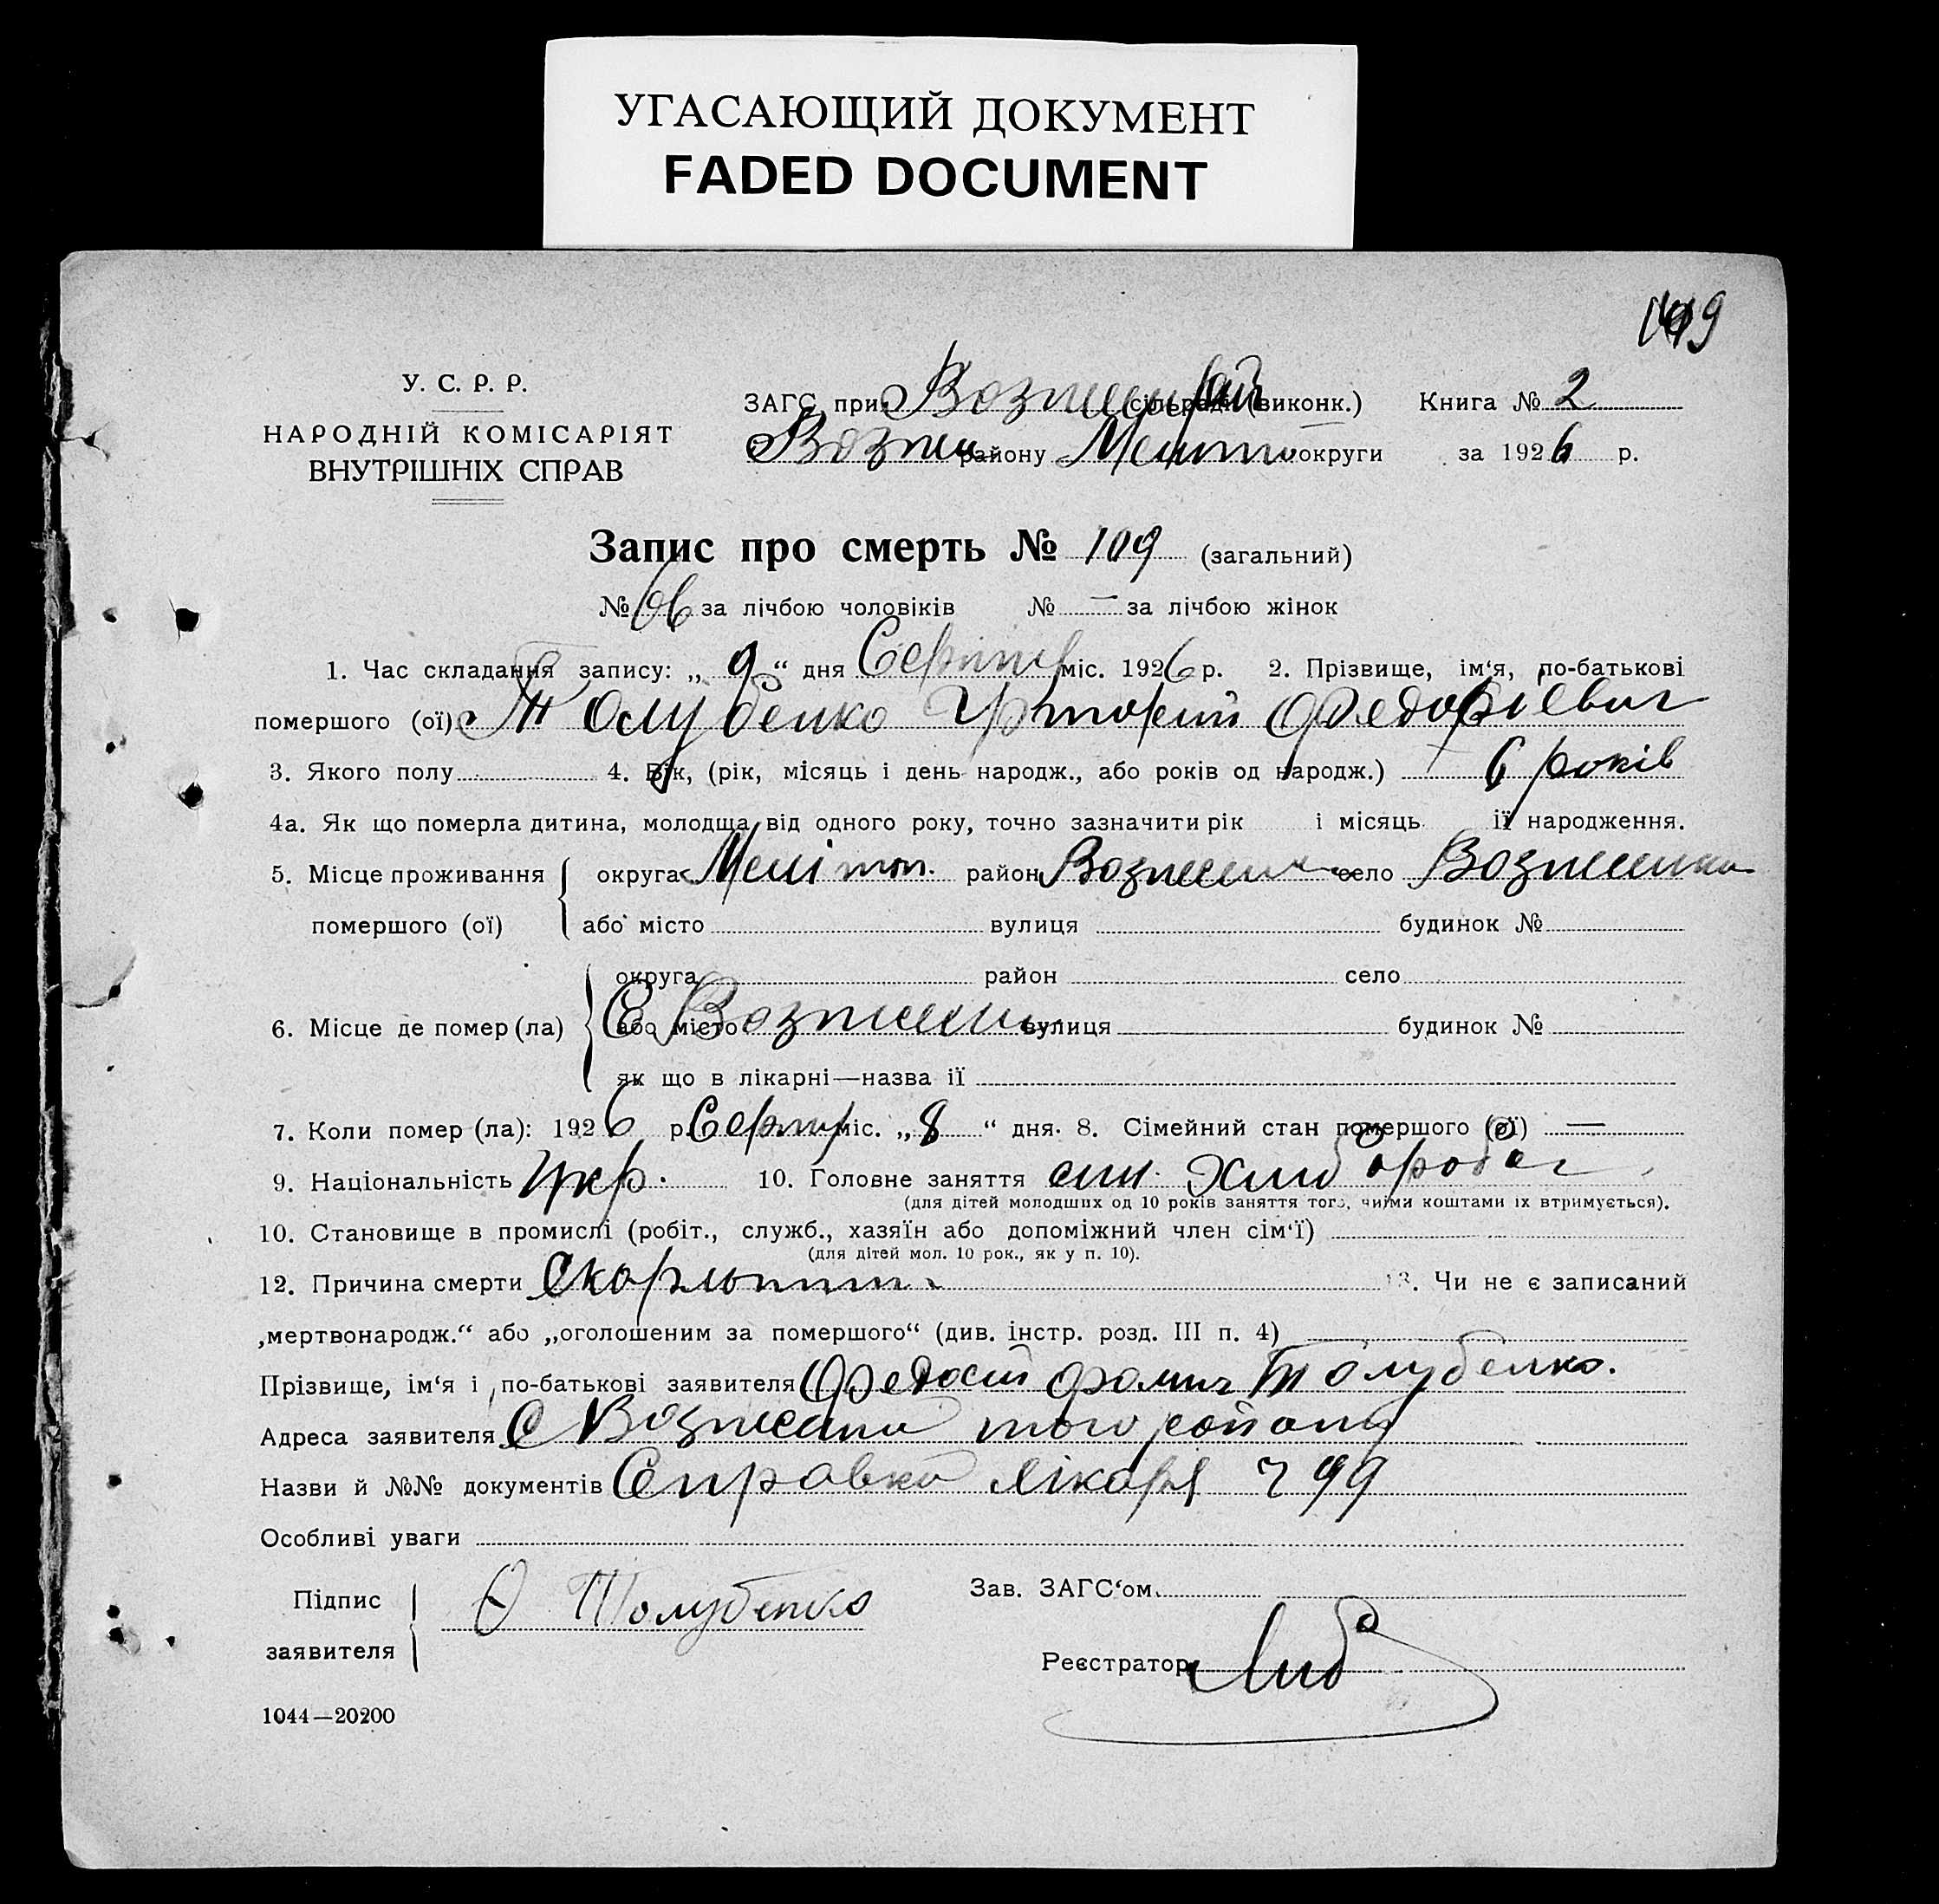 УГАСАЮЩИЙ ДОКУМЕНТ
FADED DOCUMENT
У. С. Р. Р.
НАРОДНІЙ КОМІСАРІЯТ
ВНУТРІШНІХ СПРАВ
ЗАГС при сільраді (виконк.) Книга № 2
району округи за 1926 р.
Запис про смерть № 109 (загальний)
№ 66 за лічбою чоловіків № — за лічбою жінок
1. Час складання запису: „ 9 “ дня Серпня міс. 1926 р. 2. Прізвище, ім‘я, по-батькові
помершого (ої) Толубенко Федосіевич
3. Якого полу 4. Вік, (рік, місяць і день народж., або років од народж.) 6 років
4а. Як що померла дитина, молодща від одного року, точно зазначити рік і місяць ії народження.
5. Місце проживання округа Мелітоп. район Вознесен село Вознесенка
помершого (ої) або місто вулиця будинок №
округа район село
6. Місце де помер (ла) або місто С Вознесен вулиця будинок №
як що в лікарні—назва ії
7. Коли помер (ла): 1926 р. Серпня міс. „ 8 “ дня. 8. Сімейний стан помершого (ої) —
9. Національність Укр. 10. Головне заняття син Хлибороба
(для дітей молодших од 10 років заняття того, чиїми коштами їх втримується).
10. Становище в промислі (робіт., служб., хазяїн або допоміжний член сім‘ї)
(для дітей мол. 10 рок., як у п. 10).
12. Причина смерти Скарлатина 13. Чи не є записаний
„мертвонародж.“ або „оголошеним за помершого“ (див. інстр. розд. III п. 4)
Прізвище, ім‘я і по-батькові заявителя Федосій Фомич Толубенко.
Адреса заявителя С Вознесенка того району
Назви й №№ документів Справка лікаря ч 99
Особливі уваги
Підпис
заявителя
Ѳ Толубенко
Зав. ЗАГС‘ом
Реєстратор
1044—20200